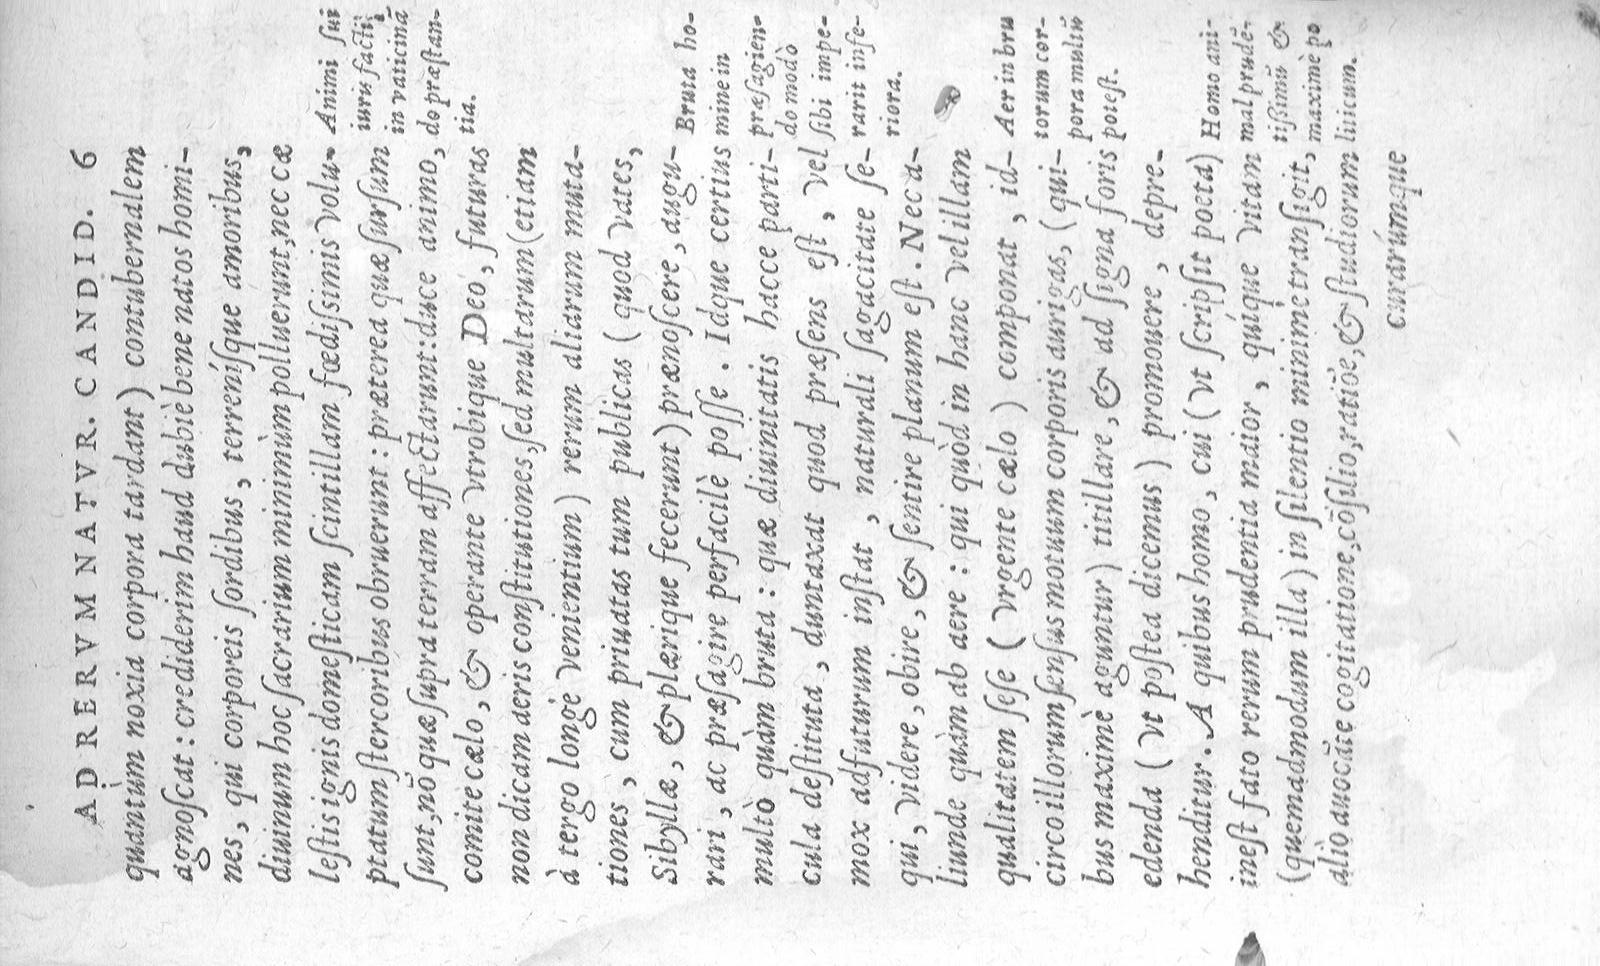 AD RERVM NATVR. CANDID. 6
quantùm noxia corpora tardant) contubernalem
agnoſcat: crediderim haud dubiè bene natos homi-
nes, qui corporeis ſordibus, terreníſque amoribus,
diuinum hoc ſacrarium minimùm polluerunt, nec cæ
leſtis ignis domeſticam ſcintillam fœdiſsimis volu-
ptatum ſtercoribus obruerunt: præterea quæ ſurſum
ſunt, nõ quæ ſupra terram affectarunt: duce animo,
comite cælo, & operante vtrobique Deo, futuras
non dicam aeris conſtitutiones, ſed multarum (etiam
à tergo longè venientium) rerum aliarum muta-
tiones, cum priuatas tum publicas (quod vates,
Sibyllæ, & plærique fecerunt) prænoſcere, augu-
rari, ac præſagire perfacilè poſſe. Idque certius
multò quàm bruta: quæ diuinitatis hacce parti-
cula deſtituta, duntaxat quod præſens eſt, vel
mox adfuturum inſtat, naturali ſagacitate ſe-
qui, videre, obire, & ſentire planum eſt. Nec a-
liunde quàm ab aere: qui quòd in hanc vel illam
qualitatem ſeſe (vrgente cælo) componat, id-
circo illorum ſenſus motum corporis aurigas, (qui-
bus maximè aguntur) titillare, & ad ſigna foris
edenda (vt poſtea dicemus) promouere, depre-
henditur. A quibus homo, cui (vt ſcripſit poeta)
ineſt fato rerum prudentia maior, quíque vitam
(quemadmodum illa) in ſilentio minimè tranſigit,
aliò auocāte cogitatione, cõſilio, ratiõe, & ſtudiorum
curarúmque
Animi ſui
iuris factii
in vaticinā
do præſtan-
tia.
Bruta ho-
mine in
præſagien-
do modò
ſibi impe-
rarit infe-
riora.
Aer in bru
torum cor-
pora multũ
poteſt.
Homo ani-
mal prudē-
tiſsimũ &
maximè po
liticum.